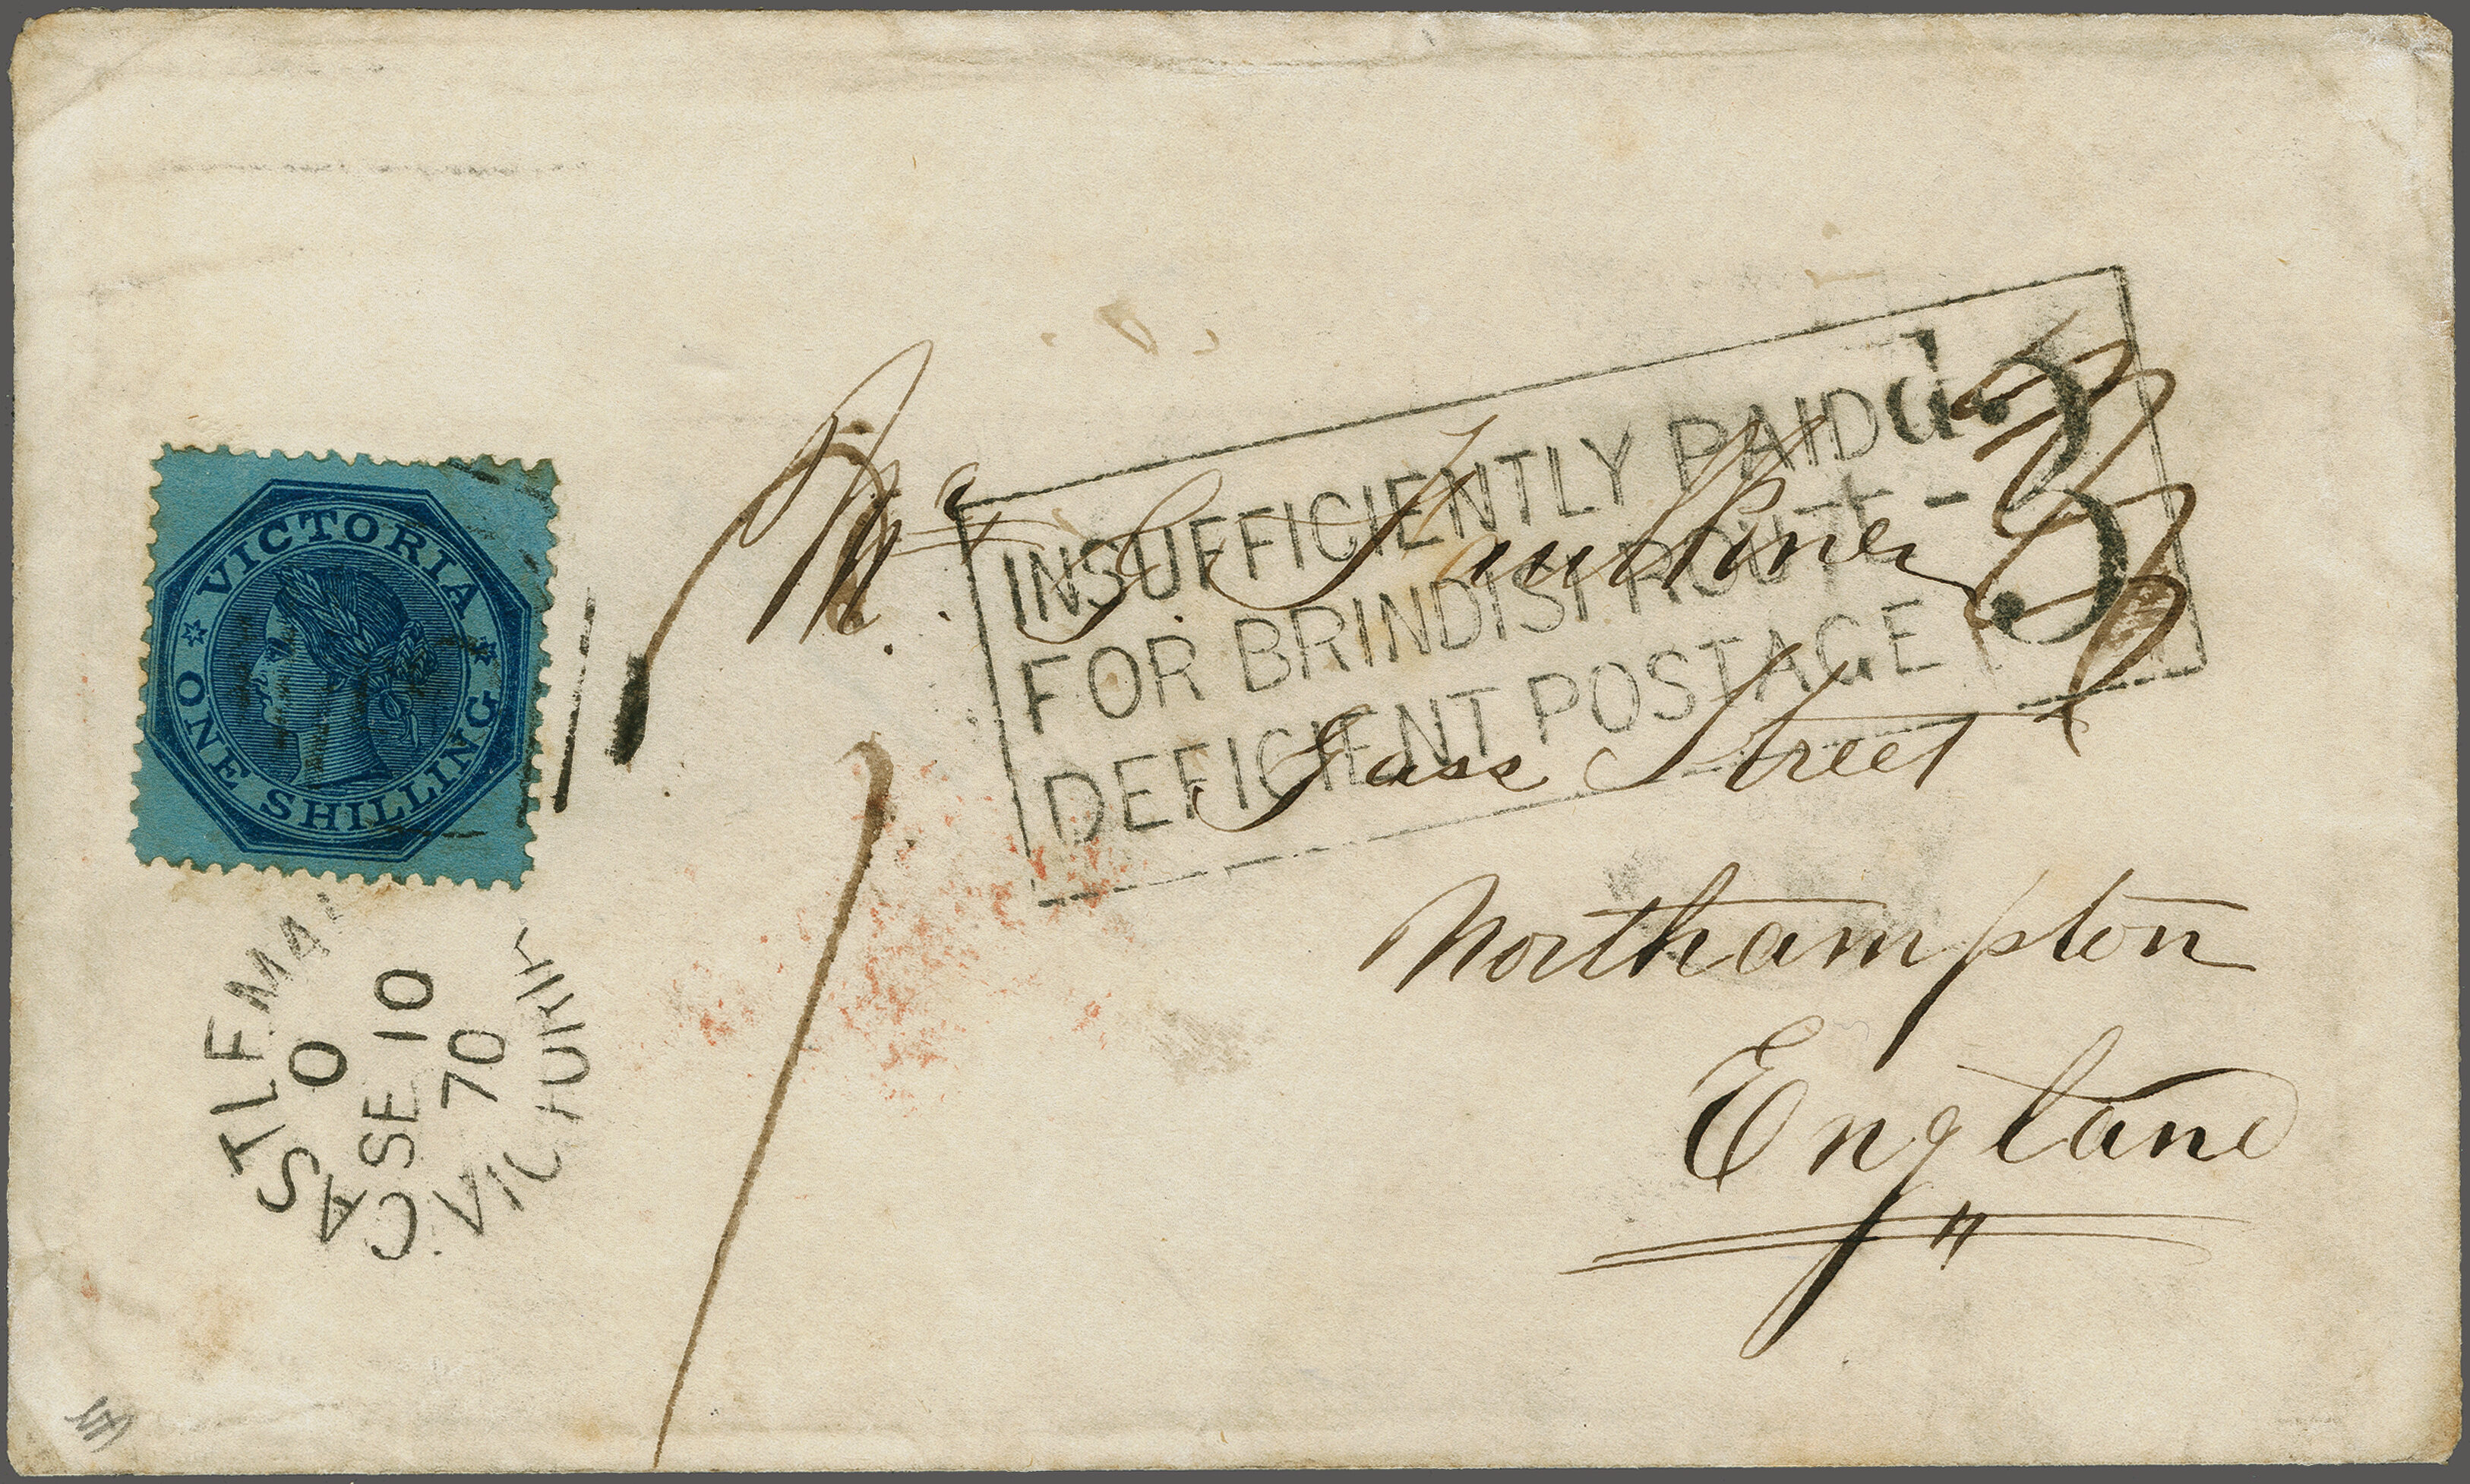 VICTORIA
ONE SHILLING
INSUFFICIENTLY PAID
FOR BRINDISI ROUTE -
DEFICIENT POSTAGE
d. 3
Mr G. Faulkner
Street
Northampton
England
CASTLEMAI
O
SE 10
70
VIC
1